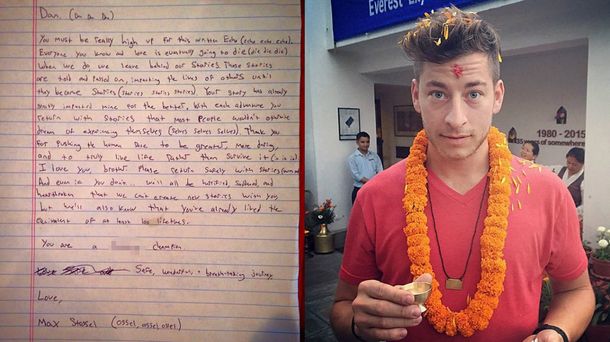 Dan, (Da Da Da)
You must be really high up for this written Echo (echo echo echo).
Everyone you know and love is eventually going to die (die die die)
When we do, we leave behind our Stories. Those stories
are told and passed on, impacting the lives of others until
they become Stories (Stories Stories Stories). Your story has already
impacted mine for the better, with each adventure you
return with stories that most people wouldn't otherwise
dream of experiencing themselves (Selves Selves Selves). Thank you
for pushing the human race to be greater, more daring,
and to truly live life rather than survive it
I love you, brother. Please return safely with stories
And even if you don't.. we'll all be horrified, saddened, and
heartbroken that we can't create new stories with you,
but we'll also know that you've already lived the
equivalent of at least lifetimes.
You are a champion.
Safe, wonderful, + breathtaking journey.
Love,
Max Stossel (ossel, ossel ossel)
Everest
1980 - 2015
35 years of somewhere